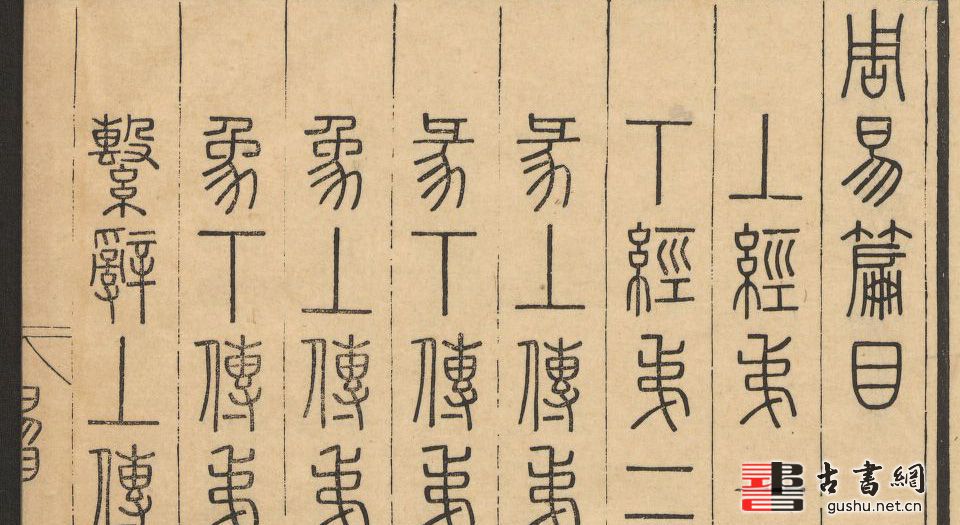 周易篇目
上經弟
下經弟二
彖上傳弟
彖下傳弟
象上傳弟
象下傳弟
繫辭上傳
易目
古書網
gushu.net.cn